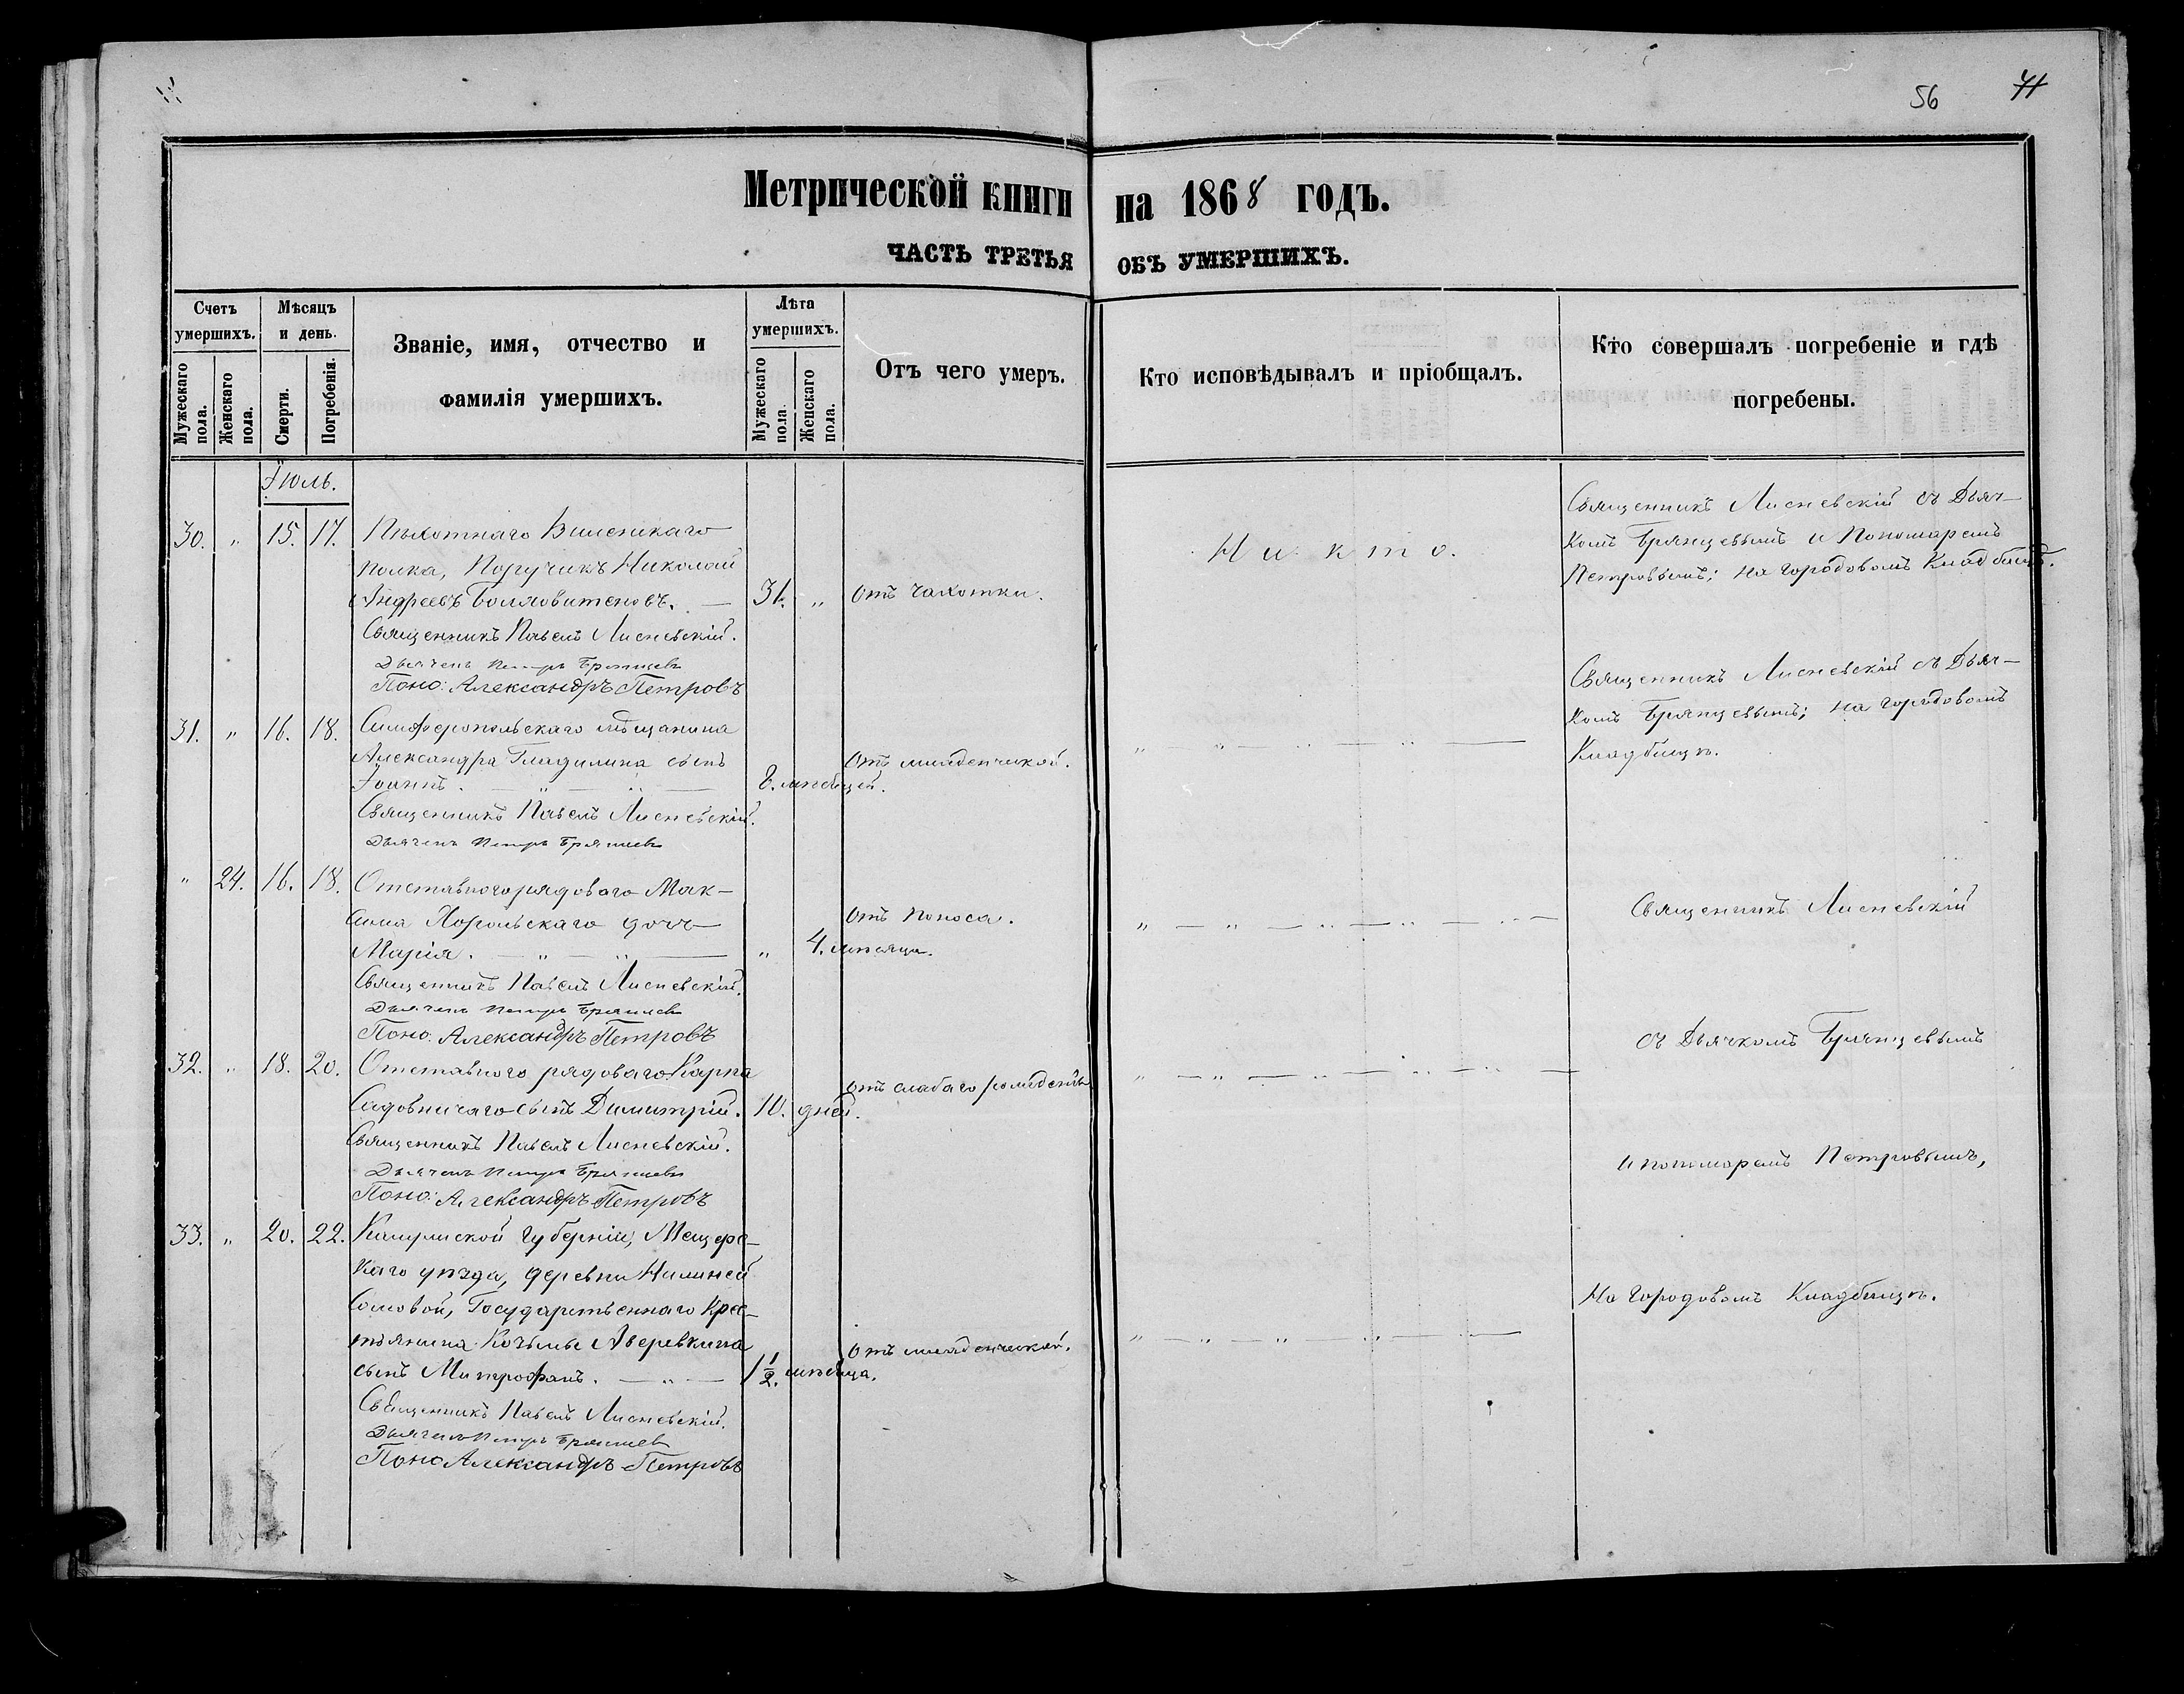 56 41
Метрической книги на 1868 годъ.
ЧАСТЬ ТРЕТЬЯ ОБЪ УМЕРШИХЪ.
Счетъ умершихъ.
Мужескаго пола.
Женскаго пола.
Мѣсяцъ и день.
Смерти.
Погребенія.
Званіе, имя, отчество и
фамилія умершихъ.
Лѣта умершихъ.
Мужескаго пола.
Женскаго пола.
Отъ чего умеръ.
Кто исповѣдывалъ и пріобщалъ.
Кто совершалъ погребеніе и гдѣ
погребены.
Іюль.
30. " 15. 17. Пѣхотнаго Виленскаго
полка, Поручикъ Николай
Андреевъ — 31. " отъ чахотки.
Никто.
Священникъ Лисневскій съ Дьяч-
комъ Брянцевымъ и Пономаремъ
Петровымъ; на городовомъ Кладбищѣ.
Священникъ Павелъ Лисневскій.
Дьячекъ Петръ Брянцевъ
Поно: Александръ Петровъ
31. " 16. 18. Симферопольскаго мѣщанина
Александра Гладилина сынъ
Іоаннъ. — " — " — 8. мѣсяцей. отъ младенческой.
" — " — " — " —
Священникъ Лисневскій съ Дьяч-
комъ Брянцевымъ; на городовомъ
Кладбищѣ.
Священникъ Павелъ Лисневскій.
Дьячекъ Петръ Брянцевъ
" 24. 16. 18. Отставного рядового Мак-
сима Хорольскаго дочь
Марія. — " — " — " 4. мѣсяца. отъ поноса.
" — " — " — " — " —
Священникъ Павелъ Лисневскій.
Дьячекъ Петръ Брянцевъ
Поно: Александръ Петровъ
32. " 18. 20. Отставного рядоваго Карпа
Садовничаго сынъ Димитрій. 10. дней. отъ слабаго рожденія
" — " — " — " — " —
Священникъ Павелъ Лисневскій.
Дьячекъ Петръ Брянцевъ
Поно: Александръ Петровъ
33. " 20. 22. губерніи, Мещовс-
каго уѣзда, деревни
Сомовой, Государственнаго Крес-
тьянина Козьмы Аверкина
сынъ Митрофанъ. — " — 1 1/2. мѣсяца. отъ младенческой.
" — " — " — " — " —
Священникъ Павелъ Лисневскій.
Дьячекъ Петръ Брянцевъ
Поно Александръ Петровъ
Священникъ Лисневскій
съ Дьячкомъ Брянцевымъ
и пономаремъ Петровымъ,
на городовомъ Кладбищѣ.